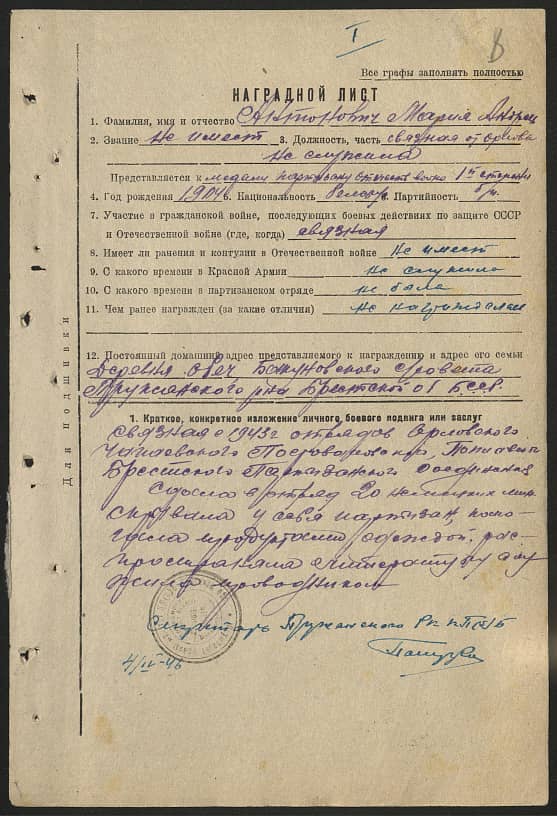 I
Все графы заполнять полностью
НАГРАДНОЙ ЛИСТ
1. Фамилия, имя и отчество Антонович Мария
2. Звание не имеет 3. Должность, часть связная отряда
не служила
Представляется к медали партизану отечеств войны 1й степени
4. Год рождения 1904 6. Национальность белорус. Партийность б/п.
7. Участие в гражданской войне, последующих боевых действиях по защите СССР
и Отечественной войне (где, когда) связная
8. Имеет ли ранения и контузии в Отечественной войне не имеет
9. С какого времени в Красной Армии не служила
10. С какого времени в партизанском отряде не была
11. Чем ранее награжден (за какие отличия) не награждалась
12. Постоянный домашний адрес представляемого к награждению и адрес его семьи
Деревня совета
Пружанского р-на Брестской об БССР
1. Краткое, конкретное изложение личного боевого подвига или заслуг
Связная с 1943г отрядов Орловского
Чапаевского
Брестского Партизанского соединения
Сдала в отряд 20 немецких мин
скрывала у себя партизан, помо-
гала продуктами одеждой. рас-
пространяла литературу слу
жила проводником
Секретарь Пружанского РК КП(б)Б
4/IV-46
Для подшивки